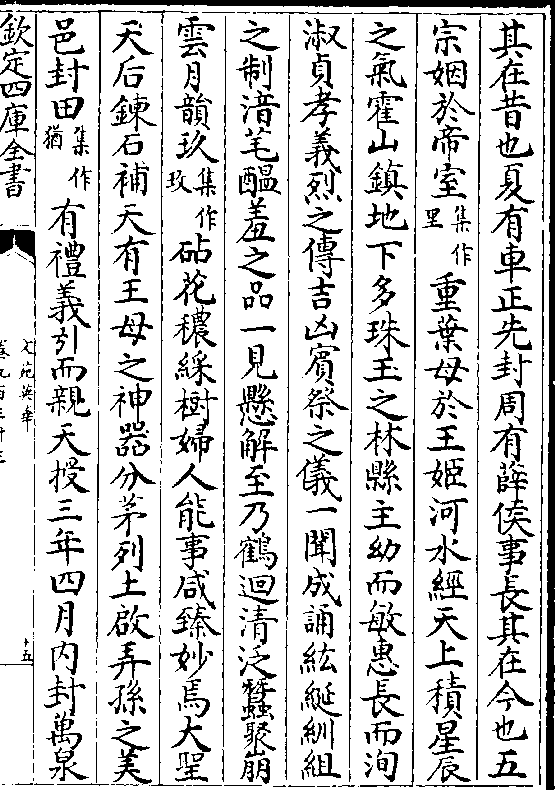 其在昔也夏有車正先封周有薛侯事長其在今也五
宗姻於帝室集作里重葉母於王姬河水經天上積星辰
之氣霍山鎮地下多珠玉之林縣主幼而敏惠長而洵
淑貞孝義烈之傳吉凶賓祭之儀一聞成誦紘綖紃組
之制湆芼醖羞之品一見懸解至乃鶴迴清泛蠶聚崩
雲月韻玖集作玫砧花穠綵樹婦人能事咸臻妙焉大聖
天后鍊石補天有王母之神器分茅列土啟弄孫之美
邑封田集作猶有禮義引而親天授三年四月内封萬泉
欽定四庫全書
文苑英華
卷九百三十三
十五